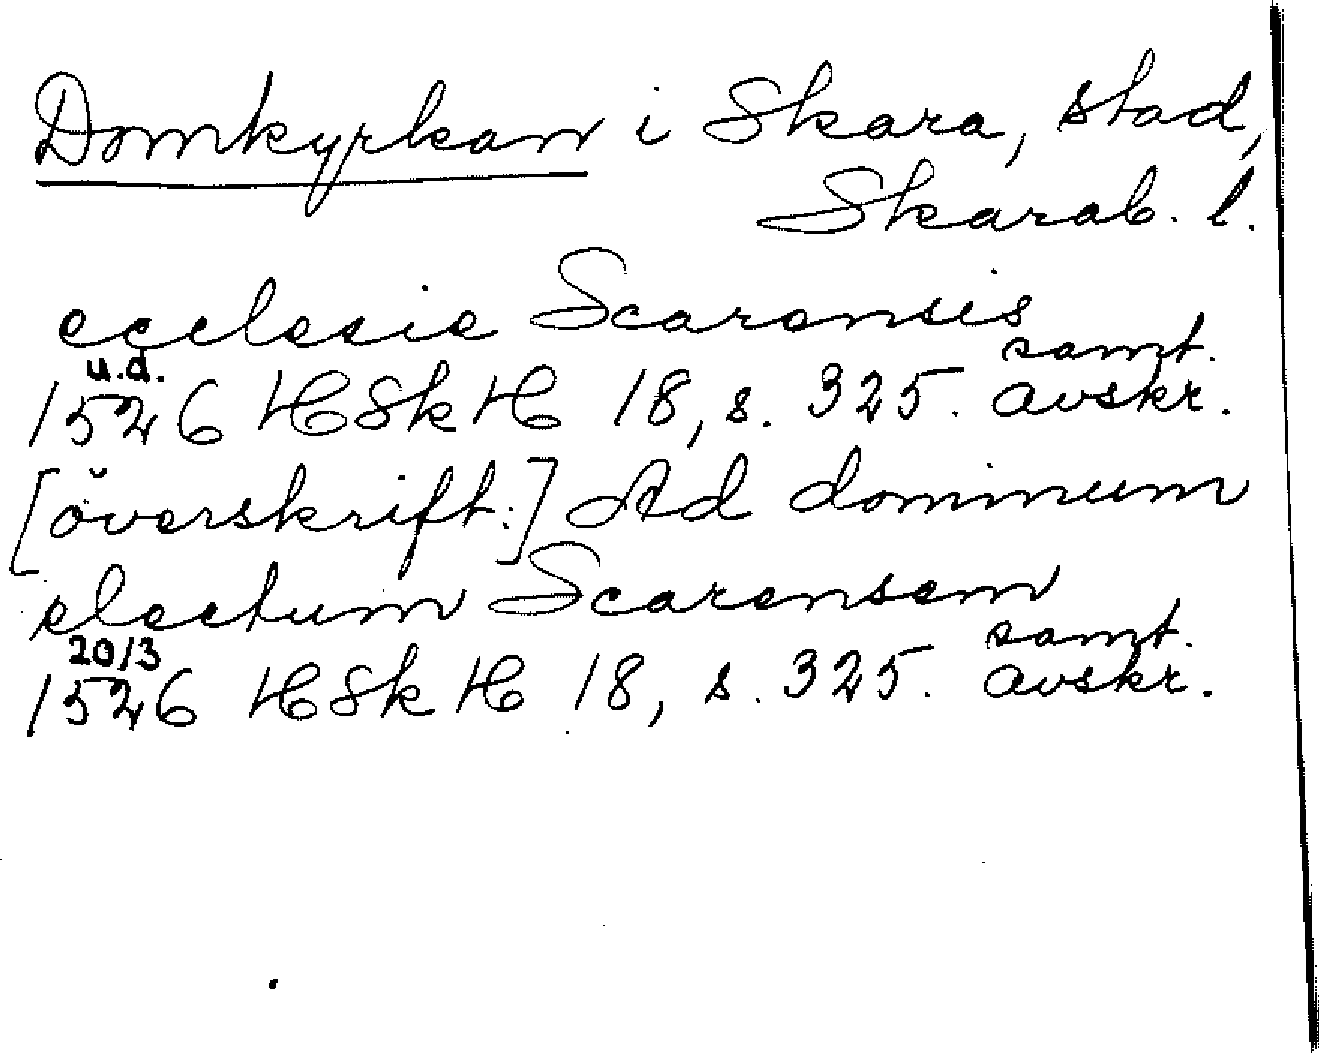 Domkyrkan i Skara, stad,
Skarab. l.
ecclesie Scarensis
u.d. samt.
1526 HSkH 18, s. 325. avskr.
[överskrift:] Ad dominum
electum Scarensem
20/3 samt.
1526 HSkH 18, s. 325. avskr.